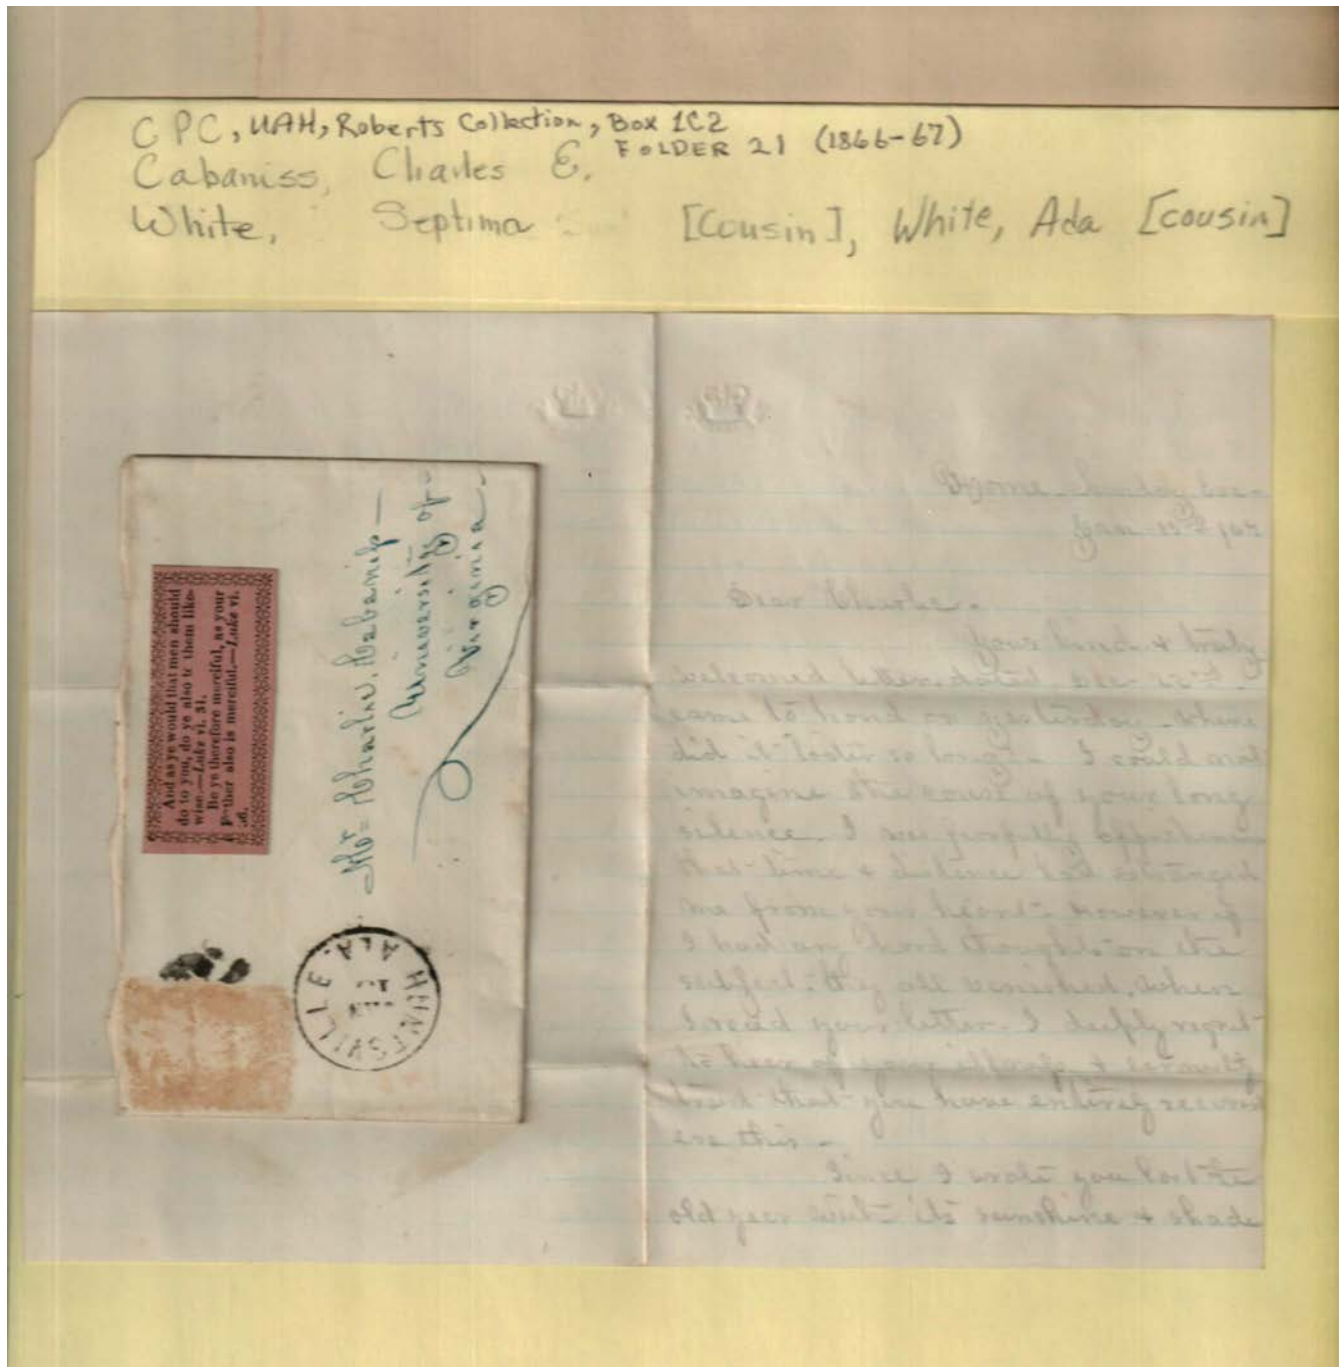 CPC, UAH, Roberts Collection, Box 1C2
FOLDER 21 (1866-67)
Cabaniss, Charles E.
White, Septima [Cousin], White, Ada [cousin]
And as ye would that men should
do to you, do ye also to them like-
wise.—Luke vi. 31.
Be ye therefore merciful, as your
Father also is merciful.—Luke vi.
36.
Mr Charlie. Cabaniss —
University of
Virginia.
HUNTSVILLE ALA.
JAN
Home Sunday Eve
Jan 13th
Dear Charlie.
Your kind & truly
welcomed letter, dated Dec
came to hand on yesterday. where
did it loiter so long. I could not
imagine the cause of your long
silence. I was
that time & distance had estranged
me from your heart. However if
I had any hard thoughts on the
subject, they all vanished, when
I read your letter. I deeply regret
to hear of your illness &
trust that you have entirely
ere this -
Since I wrote you last the
old year with its sunshine & shade